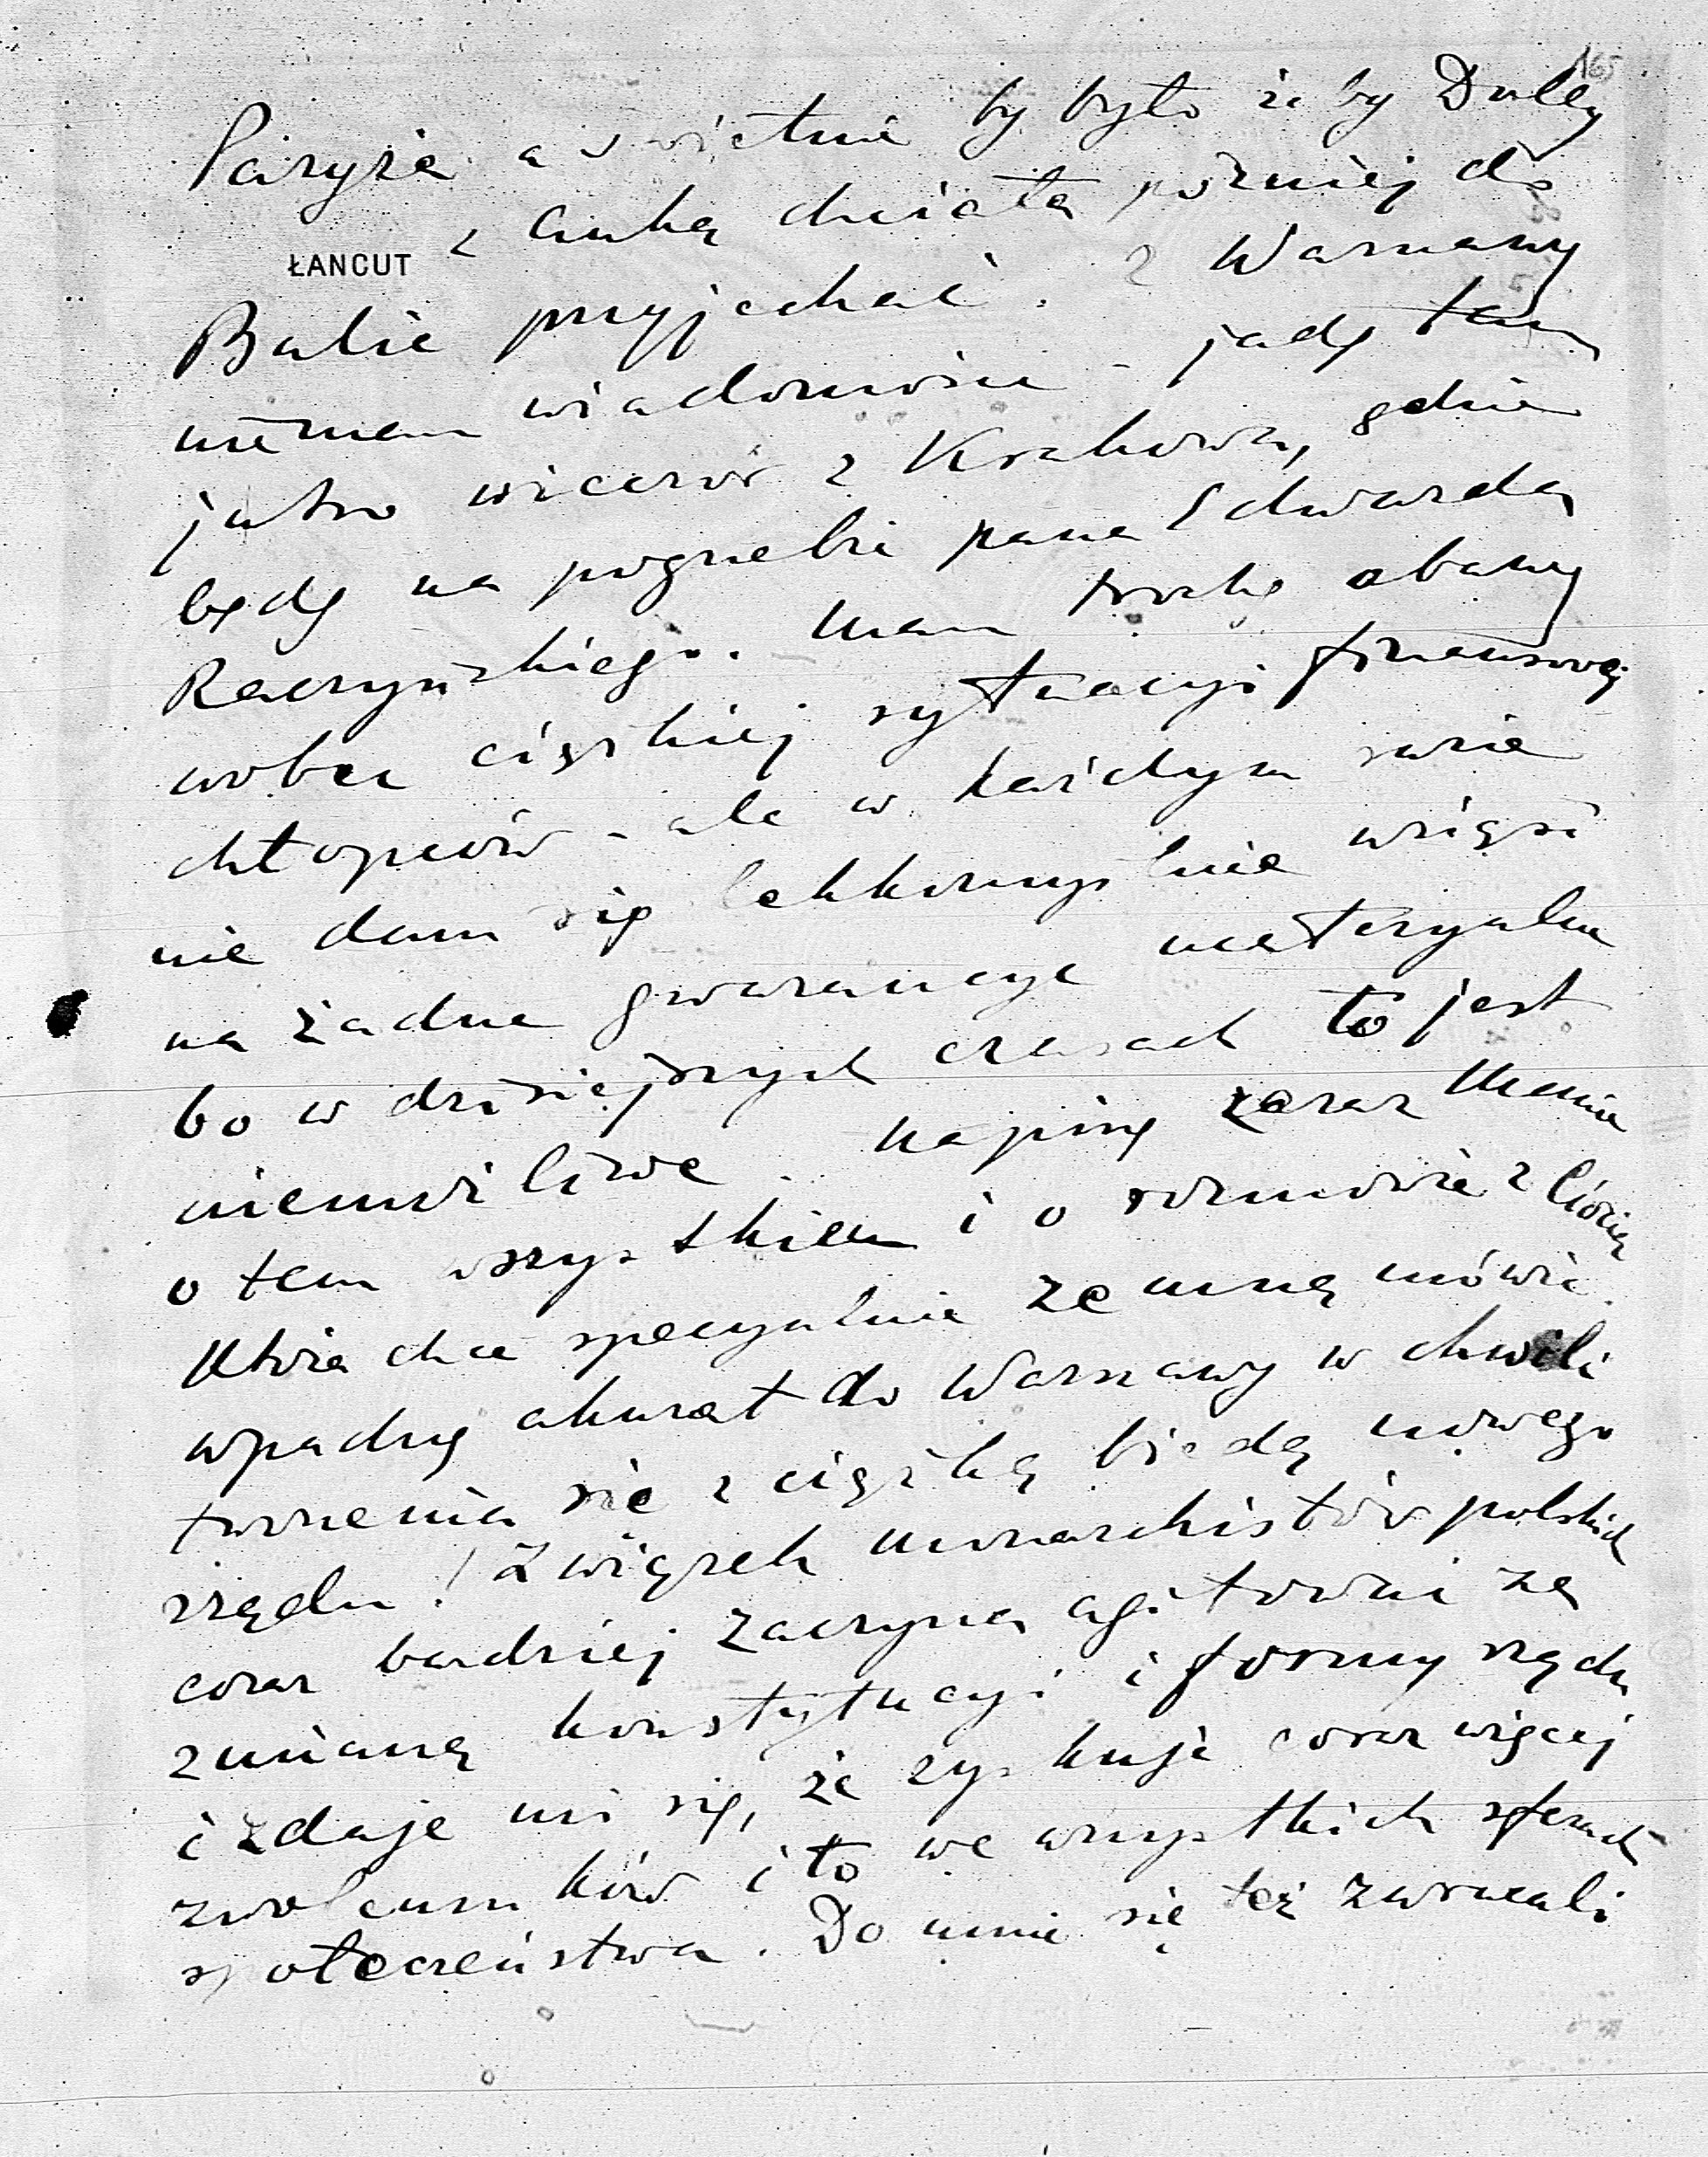 165
Paryża a świetnie by było żeby Duley
z Cuką chciała pózniej do
ŁANCUT
Balic przyjechać. Z Warszawy
niemam wiadomości - jadę tam
jutro wieczór z Krakowa, gdzie
będę na pogrzebie pana Edwarda
Raczyńskiego. Mam trochę obawy
wobec ciężkiej sytuacyi finansowej
chłopców - ale w każdym razie
nie dam się lekkomyślnie wziąść
na żadne gwarancye materyalne
bo w dzisiejszych czasach to jest
niemożliwe. Napiszę zaraz Mamie
o tem wszystkiem i o rozmowie z Ciocią
Która chce specyalnie ze mną mówić.
wpadnę akurat do Warszawy w chwili
tworzenia się z ciężką biedą nowego
rządu! Związek monarchistów polskich
coraz bardziej zaczyna agitować za
zmianą konstytucyi i formy rządu
i zdaje mi się, że zyskuje coraz więcej
zwolenników i to we wszystkich sferach
społeczeństwa. Do mnie się też zwracali